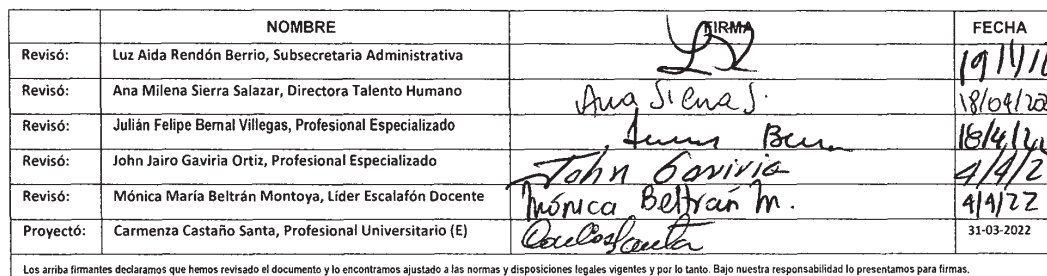 NOMBRE FIRMA FECHA
Revisó: Luz Aida Rendón Berrio, Subsecretaria Administrativa
Revisó: Ana Milena Sierra Salazar, Directora Talento Humano Ana Sierra S. 18/04/20
Revisó: Julián Felipe Bernal Villegas, Profesional Especializado 18/4/2
Revisó: John Jairo Gaviria Ortiz, Profesional Especializado John Gaviria 4/4/2
Revisó: Mónica María Beltrán Montoya, Líder Escalafón Docente Mónica Beltrán M. 4/4/22
Proyectó: Carmenza Castaño Santa, Profesional Universitario (E) 31-03-2022
Los arriba firmantes declaramos que hemos revisado el documento y lo encontramos ajustado a las normas y disposiciones legales vigentes y por lo tanto. Bajo nuestra responsabilidad lo presentamos para firmas.